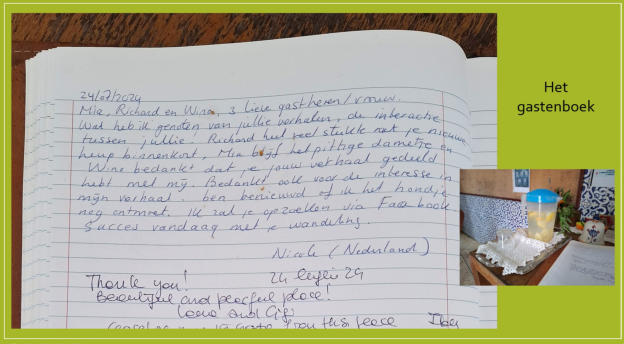 24/07/2024
Mia, Richard en Wine, 3 lieve gastheren/vrouw.
Wat heb ik genoten van jullie verhalen, de interactie
tussen jullie. Richard heel veel sterkte met je nieuwe
heup binnenkort, Mia blijf het pittige dametje en
Wine bedankt dat je jouw verhaal gedeeld
hebt met mij. Bedankt ook voor de interesse in
mijn verhaal. ben benieuwd of ik het hondje
nog ontmoet. Ik zal je opzoeken via Facebook
Succes vandaag met je wandeling.
Nicole (Nederland)
Thank you! 24
Beautiful and peaceful place!
and
from this peace
Het
gastenboek